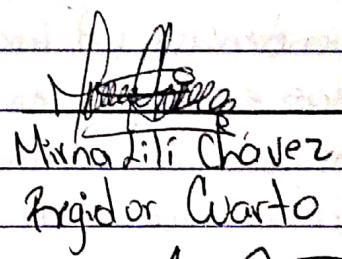 Mirna Lili Chávez
Regidor Cuarto